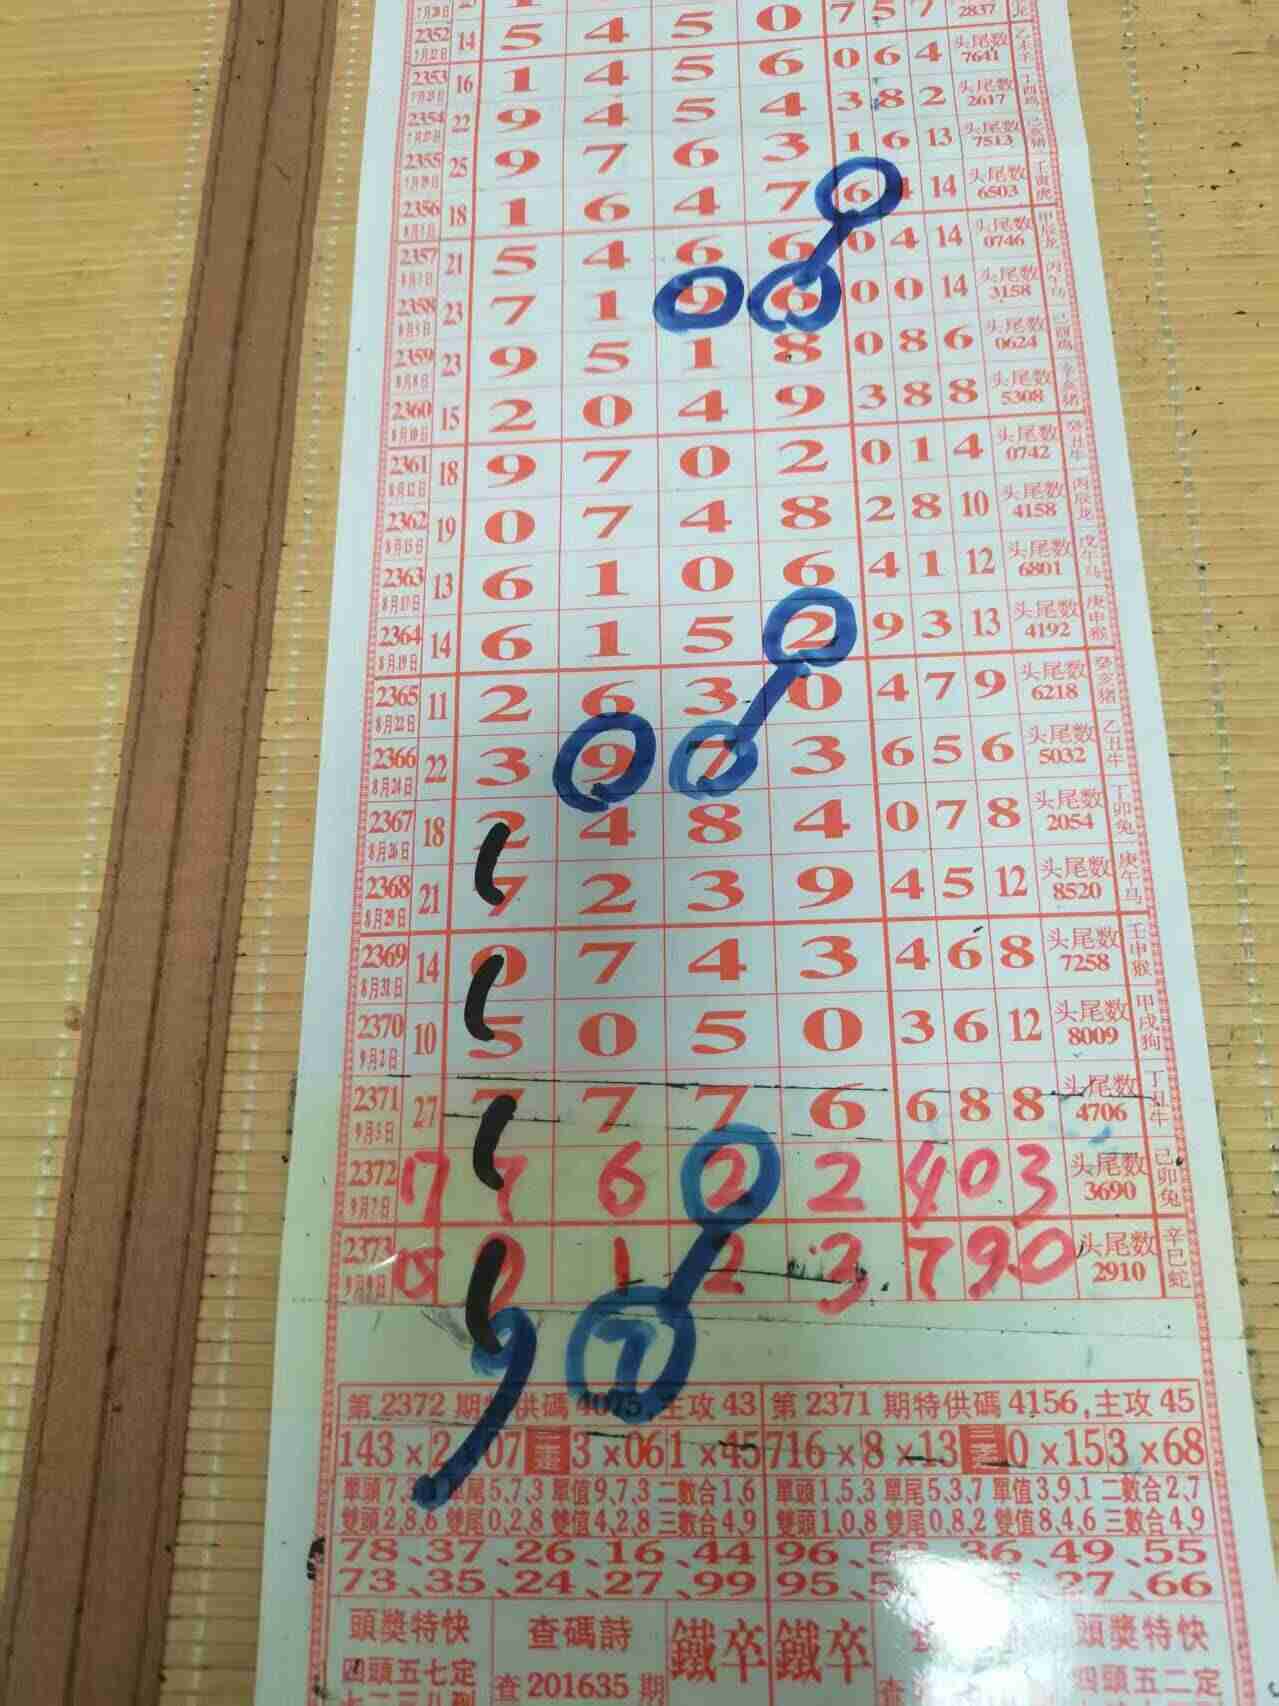 7月20日 7 5 7 2837
2352 7月22日 14 5 4 5 0 0 6 4 头尾数 7641 乙未羊
2353 16 1 4 5 6 3 8 2 头尾数 2617 丁酉鸡
2354 22 9 4 5 4 1 6 13 头尾数 7513 己亥猪
2355 25 9 7 6 3 6 4 14 头尾数 6503 壬寅虎
2356 8月1日 18 1 6 4 7 0 4 14 头尾数 0746 甲辰龙
2357 21 5 4 6 6 0 0 14 头尾数 3158 丙午马
2358 8月5日 23 7 1 9 6 0 8 6 头尾数 0624 己酉鸡
2359 8月8日 23 9 5 1 8 3 8 8 头尾数 5308 辛亥猪
2360 8月10日 15 2 0 4 9 0 1 4 头尾数 0742 癸丑牛
2361 8月12日 18 9 7 0 2 2 8 10 头尾数 4158 丙辰龙
2362 8月15日 19 0 7 4 8 4 1 12 头尾数 6801 戊午马
2363 8月17日 13 6 1 0 6 9 3 13 头尾数 4192 庚申猴
2364 8月19日 14 6 1 5 2 4 7 9 头尾数 6218 癸亥猪
2365 8月22日 11 2 6 3 0 6 5 6 头尾数 5032 乙丑牛
2366 8月24日 22 3 9 7 3 0 7 8 头尾数 2054 丁卯兔
2367 8月26日 18 2 4 8 4 4 5 12 头尾数 8520 庚午马
2368 8月29日 21 7 2 3 9 4 6 8 头尾数 7258 壬申猴
2369 8月31日 14 0 7 4 3 3 6 12 头尾数 8009 甲戌狗
2370 9月2日 10 5 0 5 0 6 8 8 头尾数 4706 丁丑牛
2371 9月5日 27 7 7 7 6 4 0 3 头尾数 3690 己卯兔
2372 9月7日 17 7 6 2 2 7 9 0 头尾数 2910 辛巳蛇
2373 9月9日 0 1 2 3
9 7
第2372期特供碼4075,主攻43 第2371期特供碼4156,主攻45
143×2 07 3×06 1×45 716×8×13 0×15 3×68
單頭7, 單尾5,7,3 單值9,7,3 二數合1,6 單頭1,5,3 單尾5,3,7 單值3,9,1 二數合2,7
雙頭2,8,6 雙尾0,2,8 雙值4,2,8 三數合4,9 雙頭1,0,8 雙尾0,8,2 雙值8,4,6 三數合4,9
78、37、26、16、44 96、 36、49、55
73、35、24、27、99 95、 27、66
頭獎特快 查碼詩 鐵卒 鐵卒 頭獎特快
四頭五七定 查201635期 四頭五二定